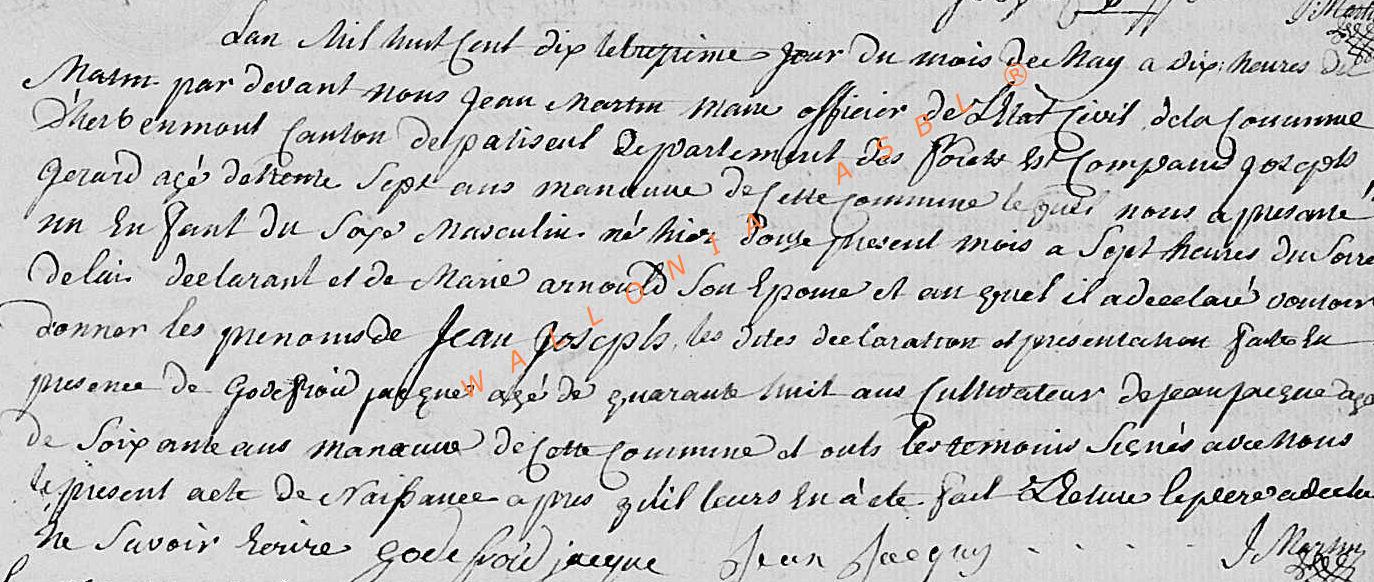 J: Martin
Lan Mil huit Cent dix le trezieme jour du mois de May a dix heures de
Matin par devant nous Jean Martin maire officier de L'Etat Civil de la Commune
D'herbenmont Canton de paliseul Departement des forets Est Comparu joseph
Gerard agé de trente Sept ans manœuvre de Cette Commune le quel nous a presanté
un Enfant du Sexe Masculin né hier douze present mois a Sept heures du Soire
de luis declarant et de Marie arnould Son Epouse et au quel il a declaré vouloir
donner les prenoms de Jean Joseph, les dites declaration et présentation faite En
presence de Godefroid jacque agé de quarante huit ans Cultivateur de jean jacque agé
de Soixante ans manœuvre de Cette Commune et onts les temoins Signés avec Nous
le present acte de Naissance apres qu'il leurs En a été fait Lecture le pere a declaré
Ne Savoir Ecrire godefroid jacque Jean Jacque . . . . J: Martin
WALLONIA ASBL ®